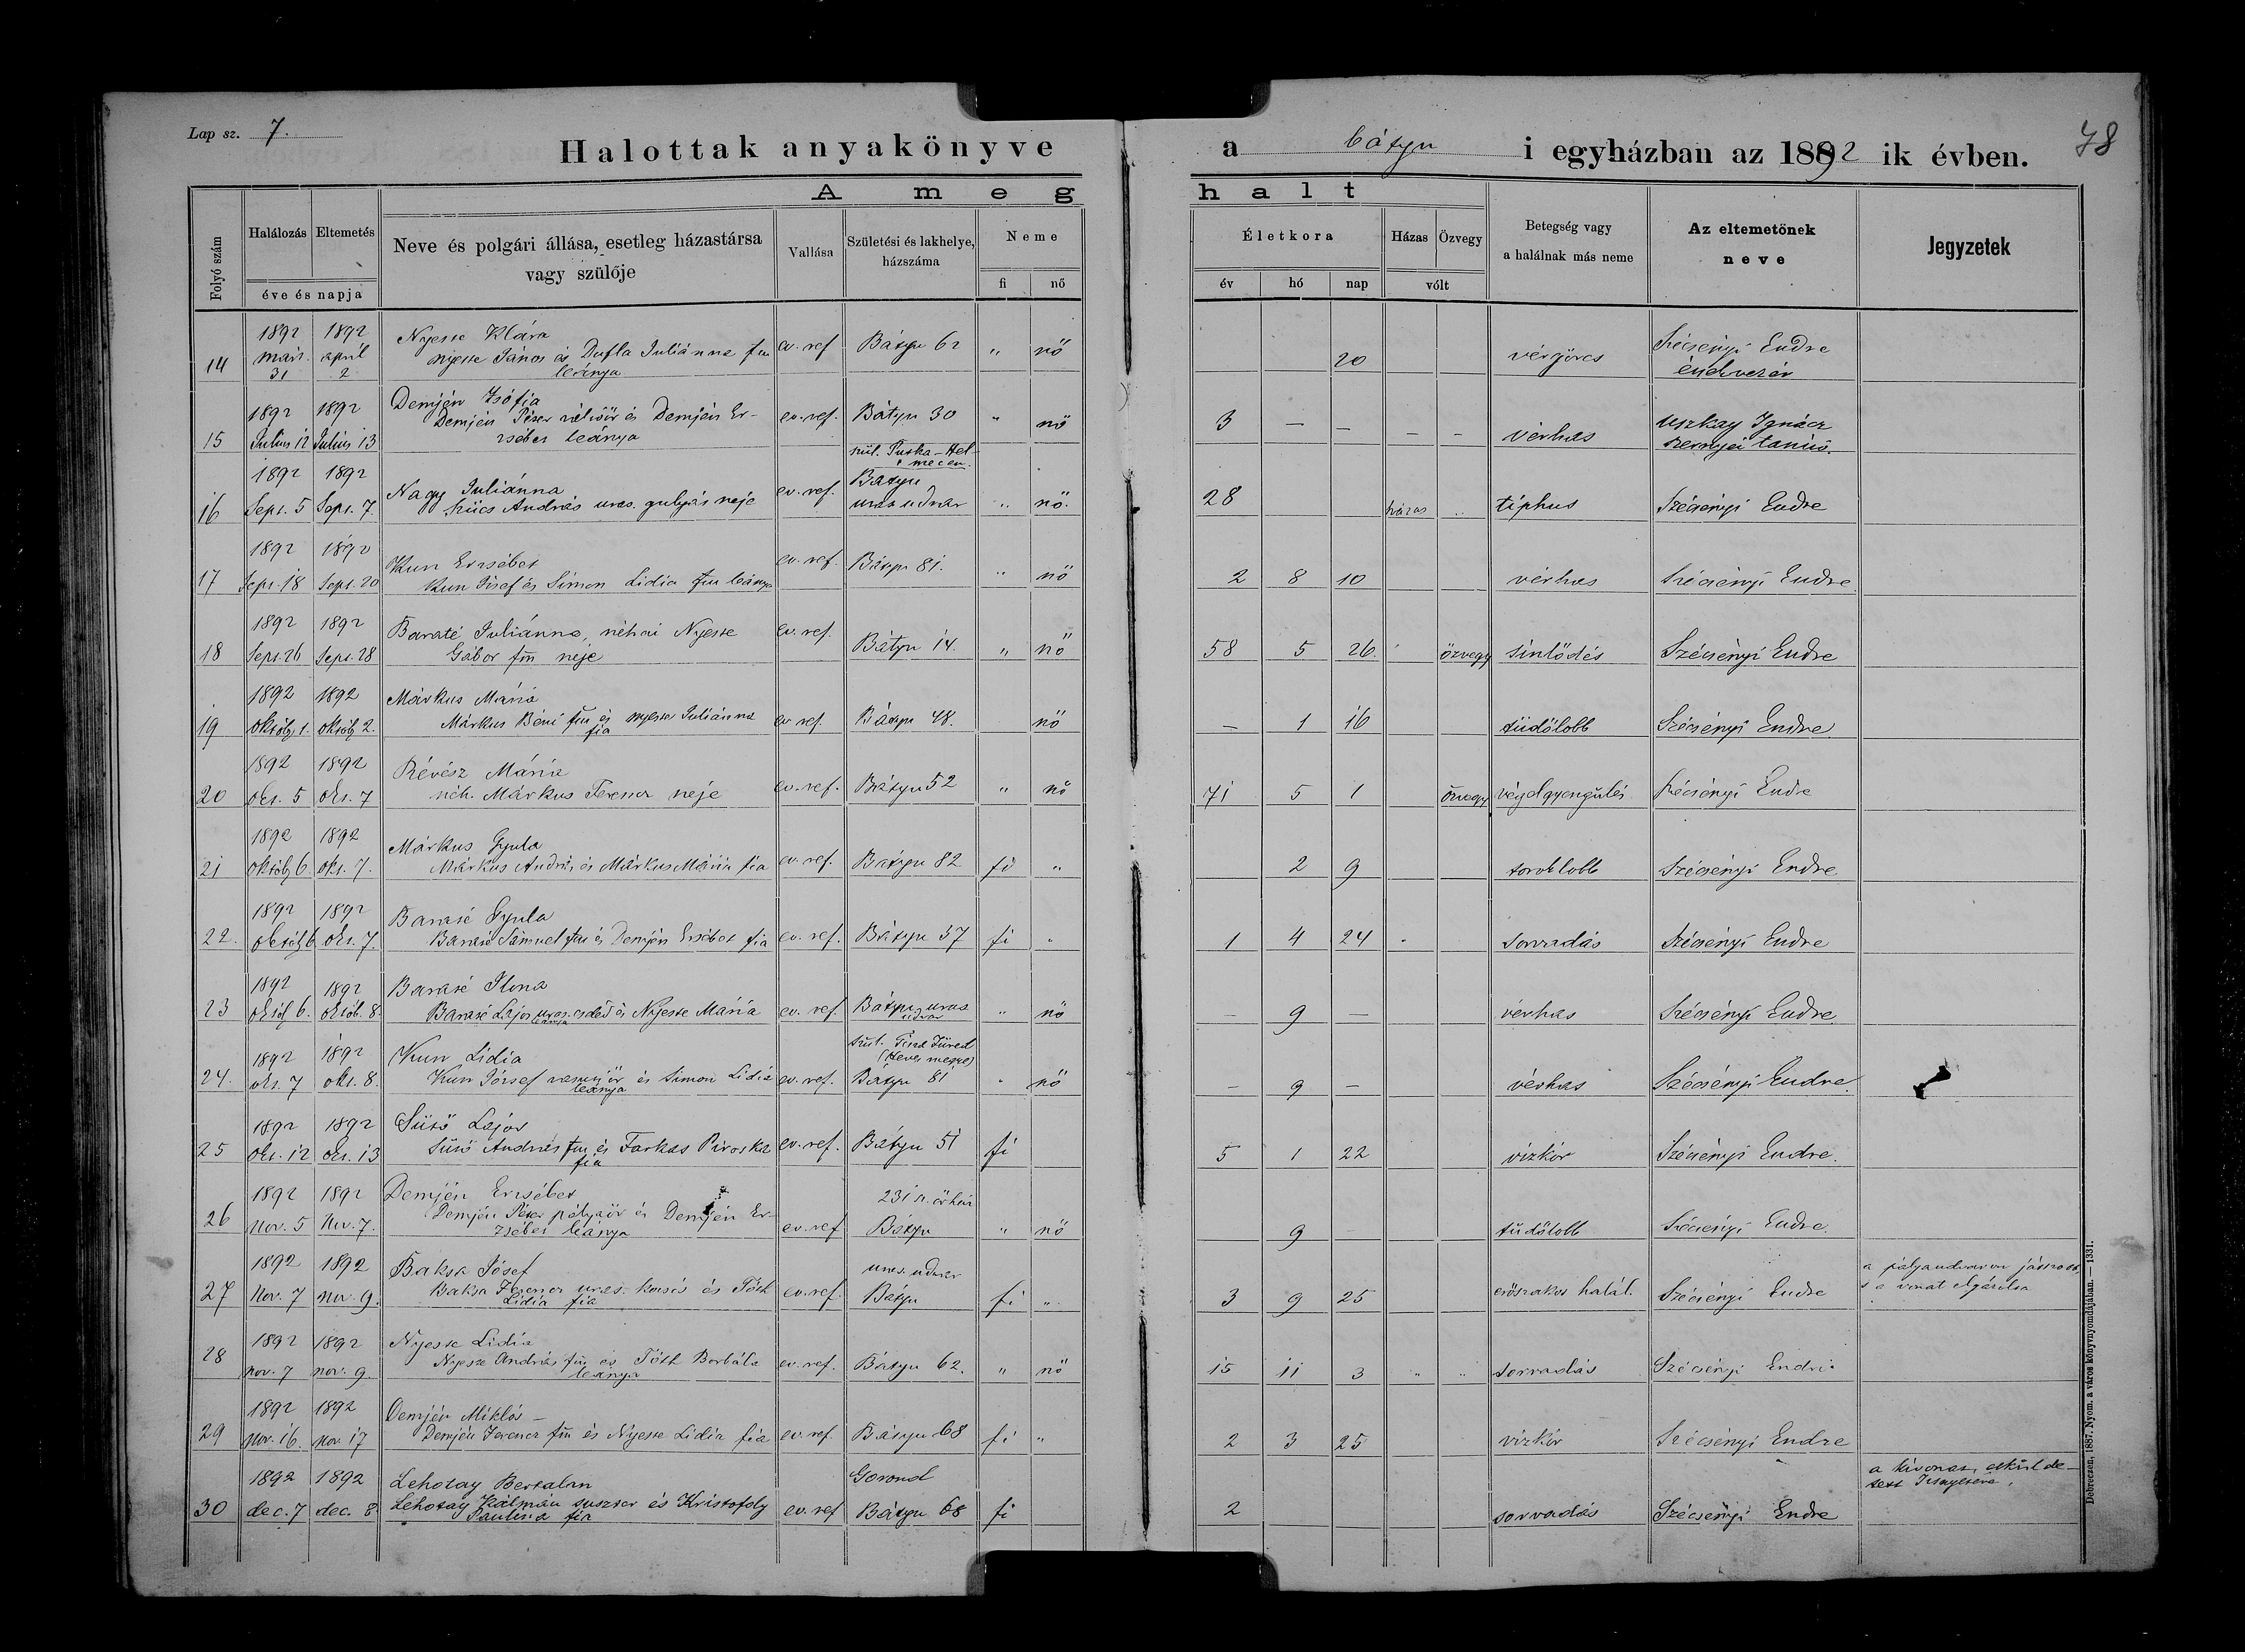 Lap sz. 7.
Halottak anyakönyve a bátyu i egyházban az 1892 ik évben.
78
A meghalt
Folyó szám
Halálozás Eltemetés
éve és napja
Neve és polgári állása, esetleg házastársa
vagy szülője
Vallása
Születési és lakhelye,
házszáma
Neme
fi nő
Életkora
év hó nap
Házas Özvegy
vólt
Betegség vagy
a halálnak más neme
Az eltemetőnek
neve
Jegyzetek
1892 1892 Nyeste Klára
14 mart. 31 april 2 Nyeste János és Dufla Juliánna fm leánya ev. ref Bátyu 62 " nő 20 vérgörcs Szécsényi Endre
énekvezér
1892 1892 Demjén Zsófia
15 Julius 12 Julius 13 Demjén Péter és Demjén Er-
zsébet leánya ev. ref. Bátyu 30 " nő 3 — — — — vérhas Uszkay Ignácz
tanító.
1892 1892 Nagy Juliánna szül. Puszka-Hel-
mecen.
16 Sept. 5 Sept. 7. Szücs András uras. gulyás neje ev. ref. Bátyu
uras udvar " nő. 28 házas " tiphus Szécsényi Endre
1892 1892 Kun Erzsébet
17 Sept. 18 Sept. 20 Kun József és Simon Lidia fm leánya ev. ref. Bátyu 81. " nő 2 8 10 vérhas Szécsényi Endre
1892 1892 Baraté Juliánna, néhai Nyeste
18 Sept. 26 Sept. 28 Gábor fm neje ev. ref. Bátyu 14. " nő 58 5 26. özvegy sinlődés Szécsényi Endre
1892 1892 Márkus Mária
19 Októb. 1. Októb 2. Márkus Béni fm és Nyeste Juliánna
fia ev ref. Bátyu 48. nő — 1 16 tüdőlobb Szécsényi Endre
1892 1892 Révész Mária
20 Okt. 5 Okt. 7 néh. Márkus Ferencz neje ev. ref. Bátyu 52 " nő 71 5 1 özvegy végelgyengülés Szécsényi Endre
1892 1892 Márkus Gyula
21 Októb 6. Okt. 7. Márkus András és Márkus Mária fia ev. ref. Bátyu 82 fi " 2 9 toroklobb Szécsényi Endre
1892 1892 Baraté Gyula
22. Októb 6 Okt. 7. Baraté Sámuel fm és Demjén Erzsébet fia ev. ref. Bátyu 37 fi " 1 4 24 sorvadás Szécsényi Endre
1892 1892 Baraté Ilona
23 Októb 6. Októb. 8. Baraté Lajos uras. cseléd és Nyeste Mária
leánya ev. ref. Bátyu uras
udvar " nő — 9 — vérhas Szécsényi Endre
1892 1892 Kun Lidia szül. Tisza Füred
(Heves megye)
24. okt. 7 okt. 8. Kun József és Simon Lidia
leánya ev. ref. Bátyu 81 " nő — 9 — vérhas Szécsényi Endre.
1892 1892 Sütő Lajos
25 Okt. 12 Okt. 13 Sütő András fm és Farkas Piroska
fia ev. ref. Bátyu 51 fi 5 1 22 vizkór Szécsényi Endre.
1892 1892 Demjén Erzsébet 231 sz. őrház
26 Nov. 5 Nov. 7. Demjén Péter pályaőr és Demjén Er-
zsébet leánya ev. ref. Bátyu " nő 9 — tüdőlobb Szécsényi Endre.
1892 1892 Baksa József uras. udvar
27 Nov. 7 nov. 9. Baksa Ferencz uras. kocsis és Tóth
Lidia fia ev. ref. Bátyu fi " 3 9 25 erőszakos halál. Szécsényi Endre a pályaudvaron játszott,
s a vonat elgázolta
1892 1892 Nyeste Lidia
28 nov. 7 nov. 9. Nyeste András fm és Tóth Borbála
leánya ev. ref. Bátyu 62. " nő 15 11 3 " " sorvadás Szécsényi Endre
1892 1892 Demjén Miklós —
29 Nov. 16. nov. 17 Demjén Ferencz fm és Nyeste Lidia fia ev. ref. Bátyu 68 fi " 2 3 25 vizkór Szécsényi Endre
1892 1892 Lehotay Bertalan Gorond
30 dec. 7 dec. 8 Lehotay Kálmán suszter és Kristofoly
Paulina fia ev. ref Bátyu 68 fi 2 sorvadás Szécsényi Endre a kivonat elkülde-
tett
Debreczen, 1887. Nyom. a város könyvnyomdájában. — 1331.